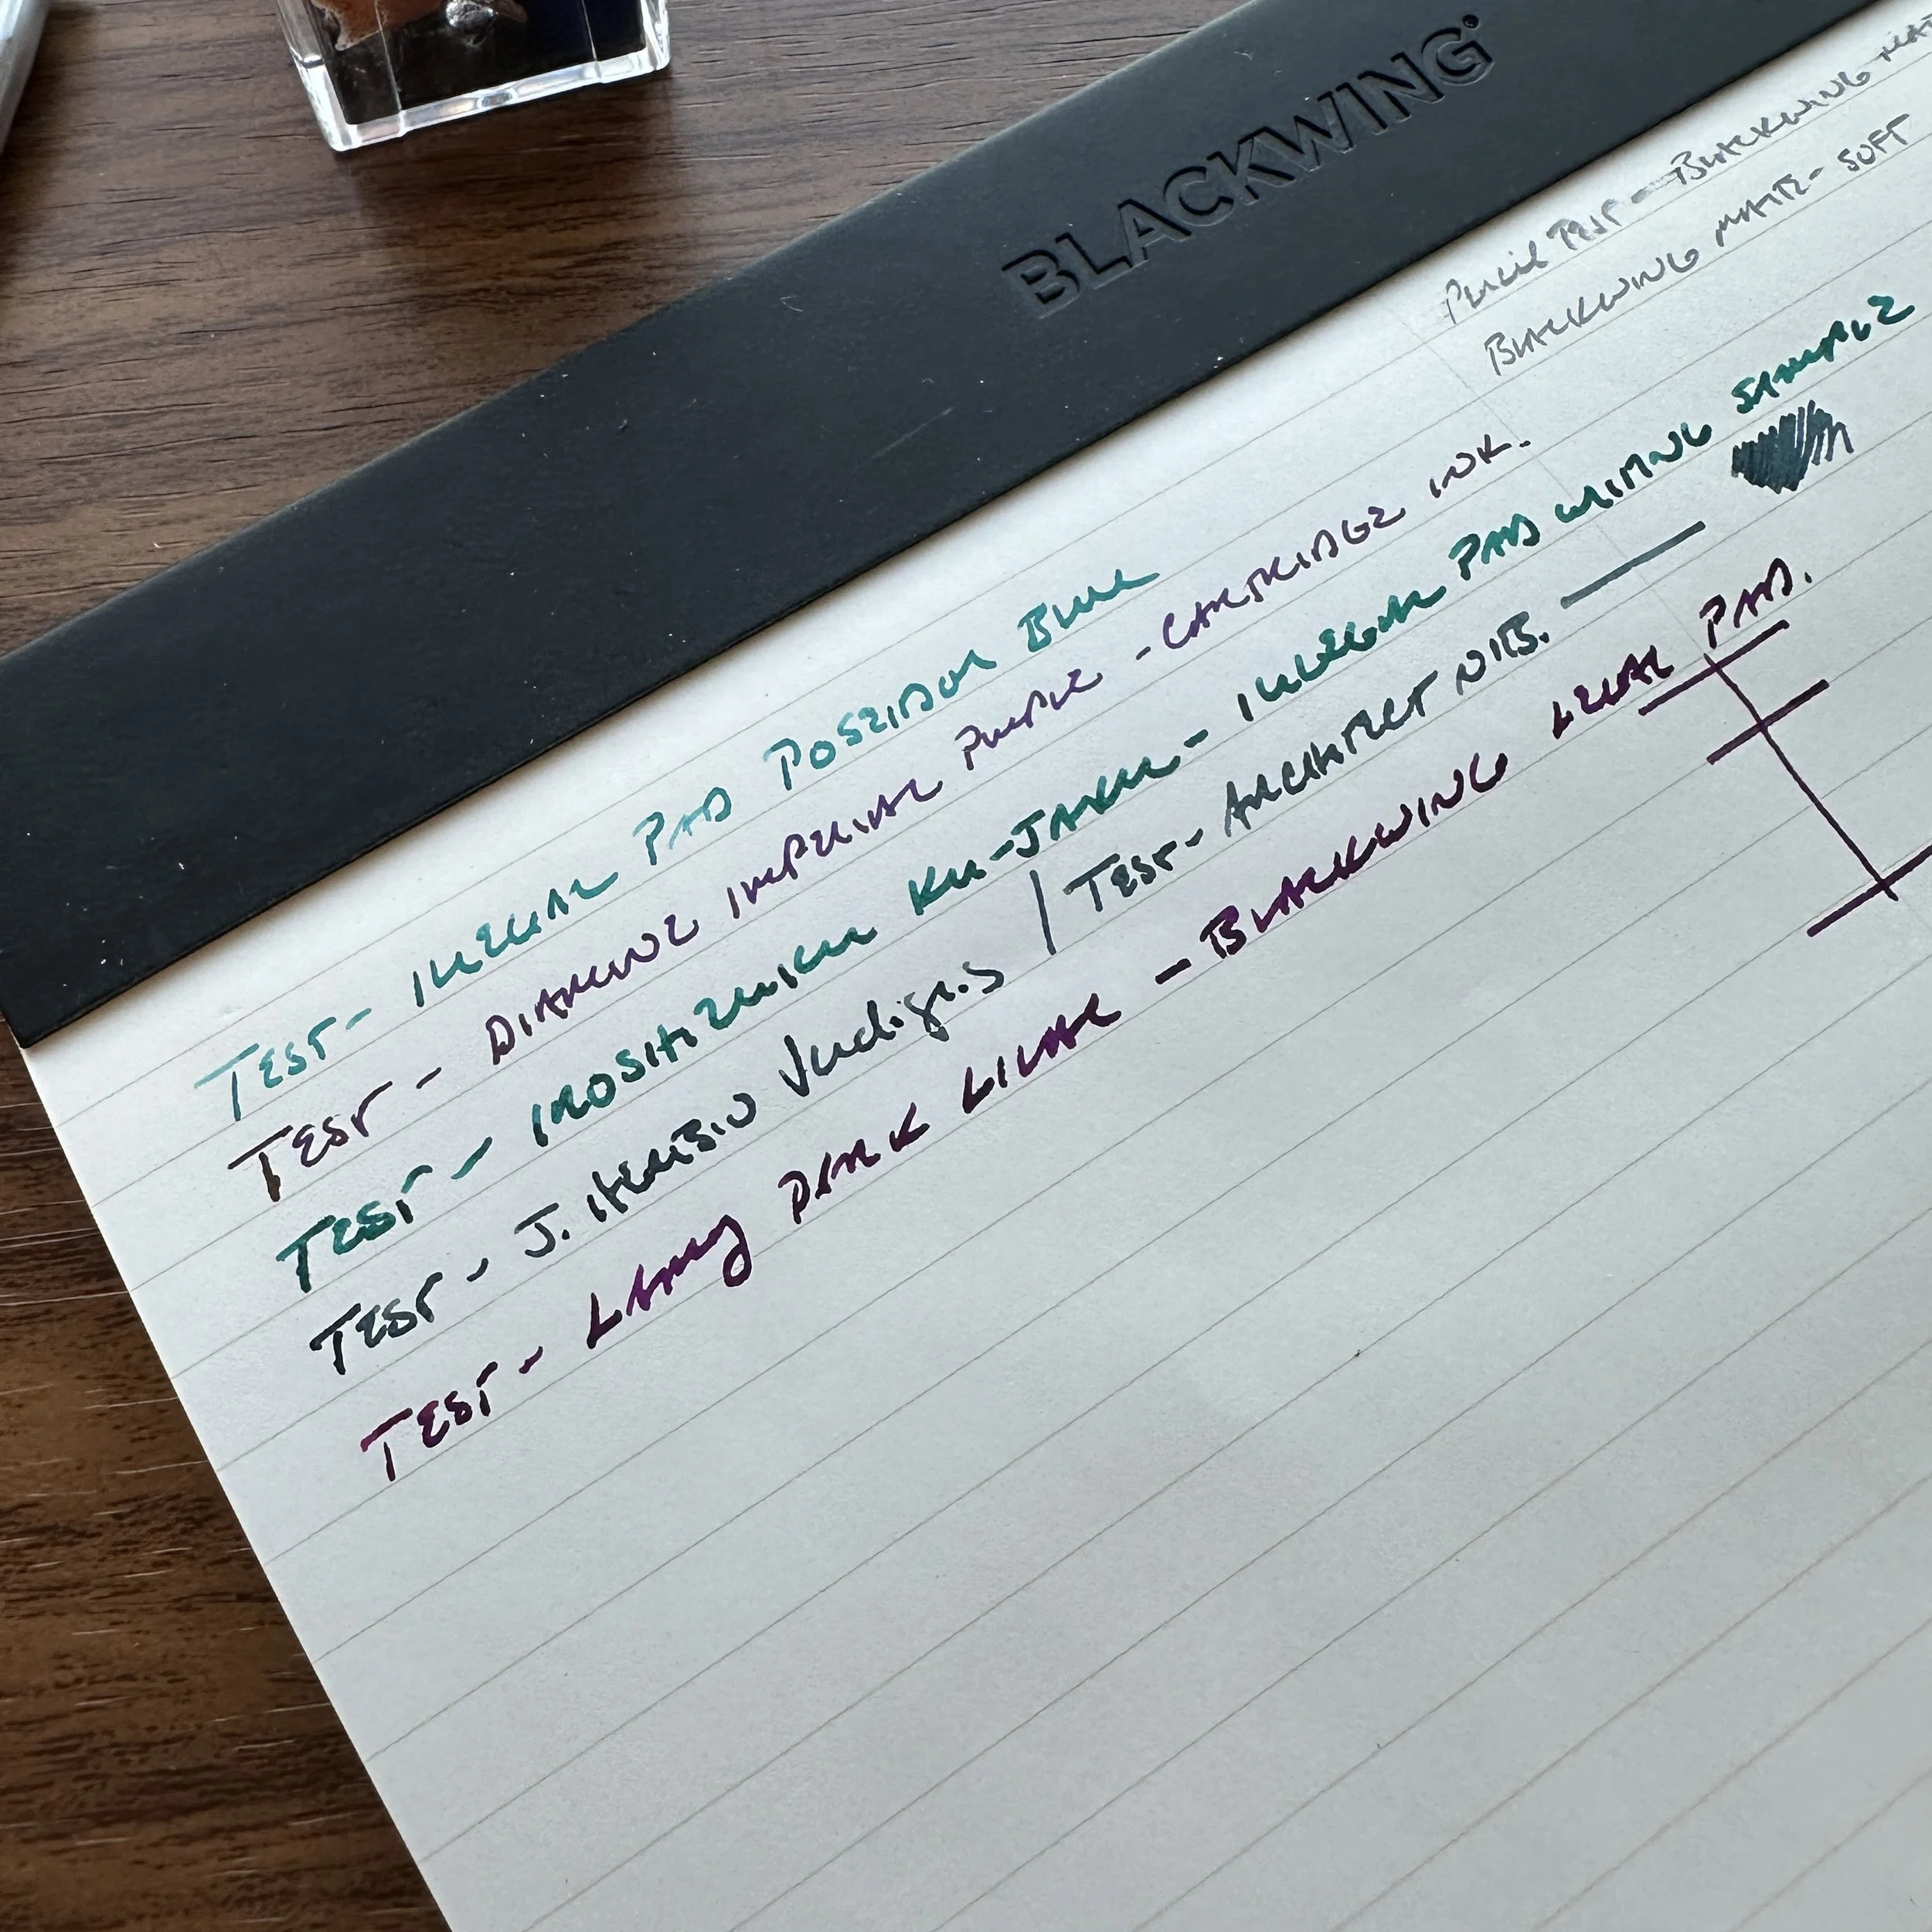 BLACKWING
PENCIL TEST - BLACKWING MAT
BLACKWING MATTE - SOFT
TEST - ILLEGAL PAD POSEIDON BLUE
TEST - DIAMINE IMPERIAL PURPLE - CARTRIDGE INK.
TEST - IROSHIZUKU KU-JAKU - ILLEGAL PAD WRITING SAMPLE
TEST - J. HERBIN Verdigris | TEST - ARCHITECT NIB.
TEST - LAMY DARK LILAC - BLACKWING LEGAL PAD.